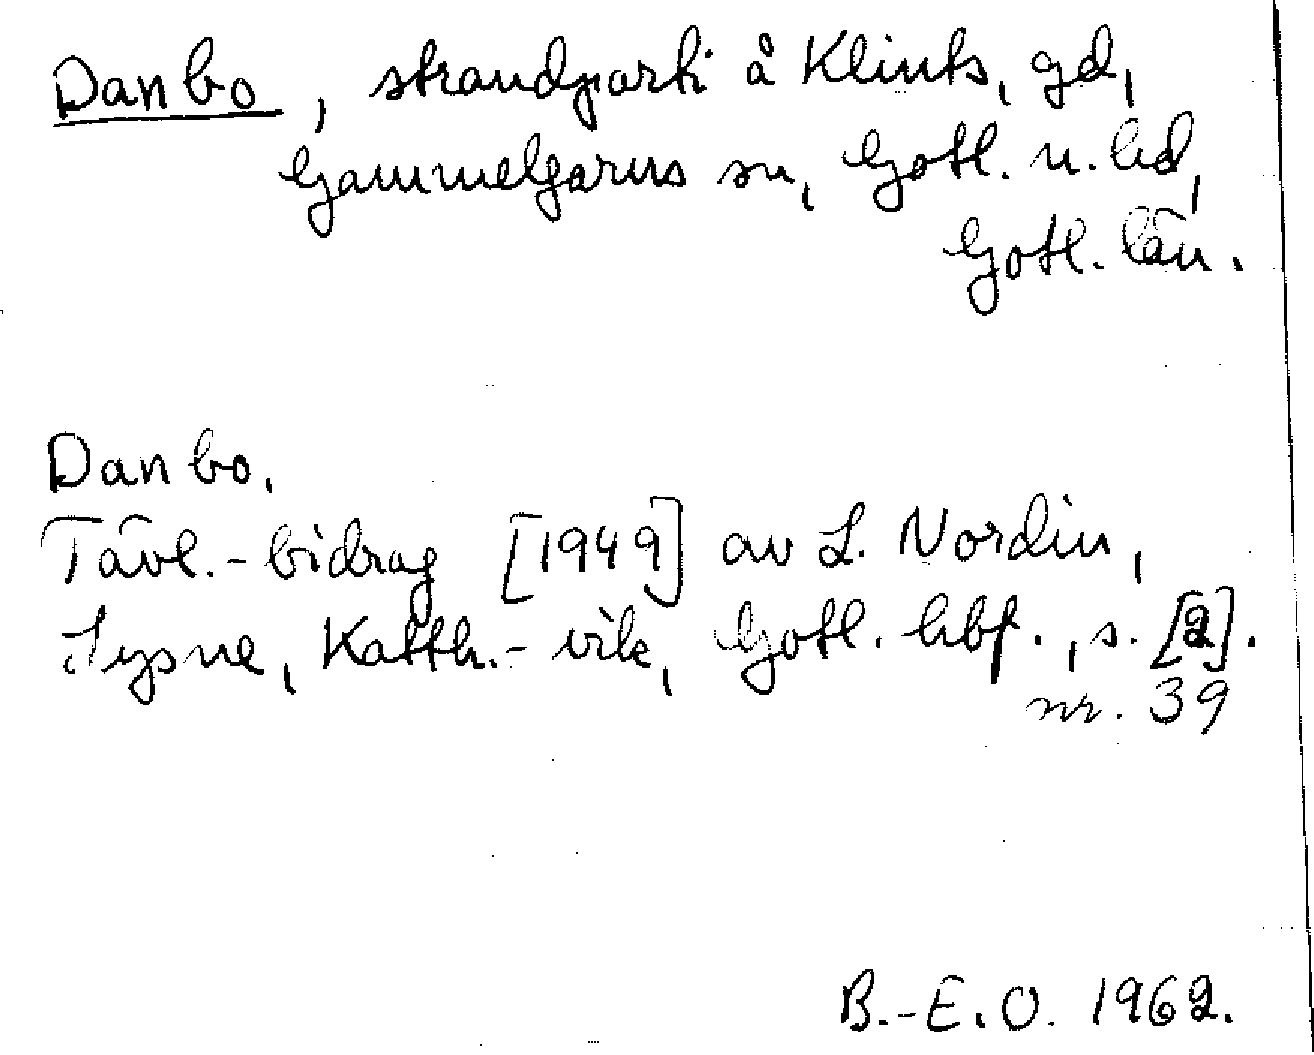 Danbo, strandparti å Klints, gd,
Gammelgarns sn, Gotl. n. hd,
Gotl. län.
Danbo.
Tävl.-bidrag [1949] av L. Nordin,
Sysne, Katth.-vik, Gotl. hbf., s. [2].
nr. 39
B.-E. O. 1962.